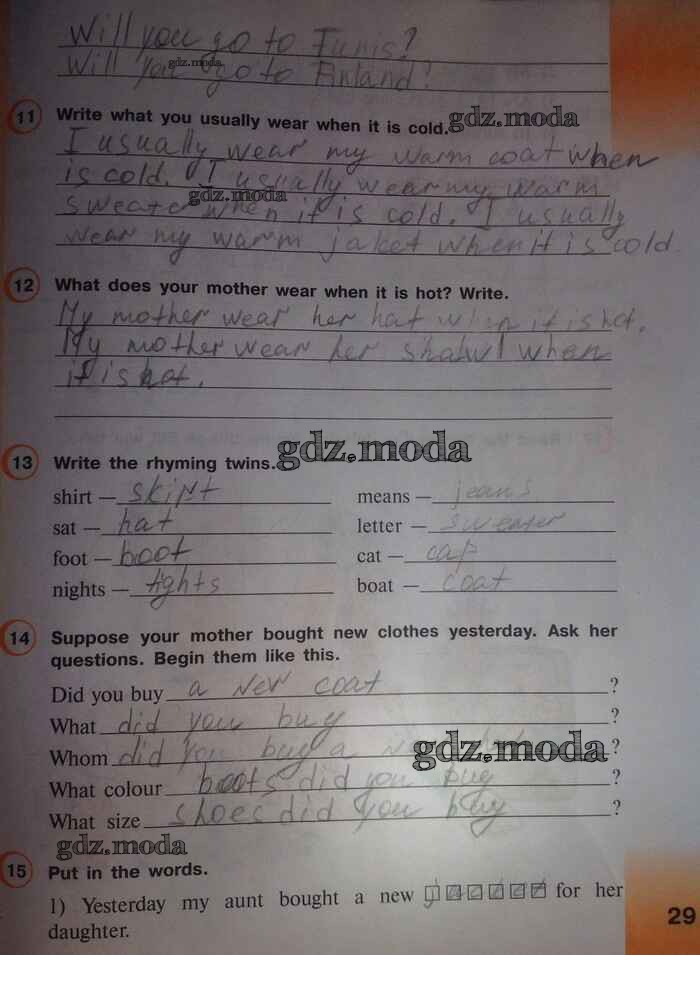 Will you go to Tunis?
Will you go to Finland?
gdz.moda
11 Write what you usually wear when it is cold.
gdz.moda
I usually wear my warm coat when
is cold. I usually wear my warm
gdz.moda
sweater when it is cold. I usually
wear my warm jaket when it is cold.
12 What does your mother wear when it is hot? Write.
My mother wear her hat when it is hot.
My mother wear her shawl when
it is hot.
13 Write the rhyming twins.
gdz.moda
shirt — skirt means — jeans
sat — hat letter — sweater
foot — boot cat — cap
nights — tights boat — coat
14 Suppose your mother bought new clothes yesterday. Ask her
questions. Begin them like this.
Did you buy a new coat ?
What did you buy ?
Whom did you buy a ?
gdz.moda
What colour boots did you buy ?
What size shoes did you buy ?
gdz.moda
15 Put in the words.
1) Yesterday my aunt bought a new for her
daughter.
29